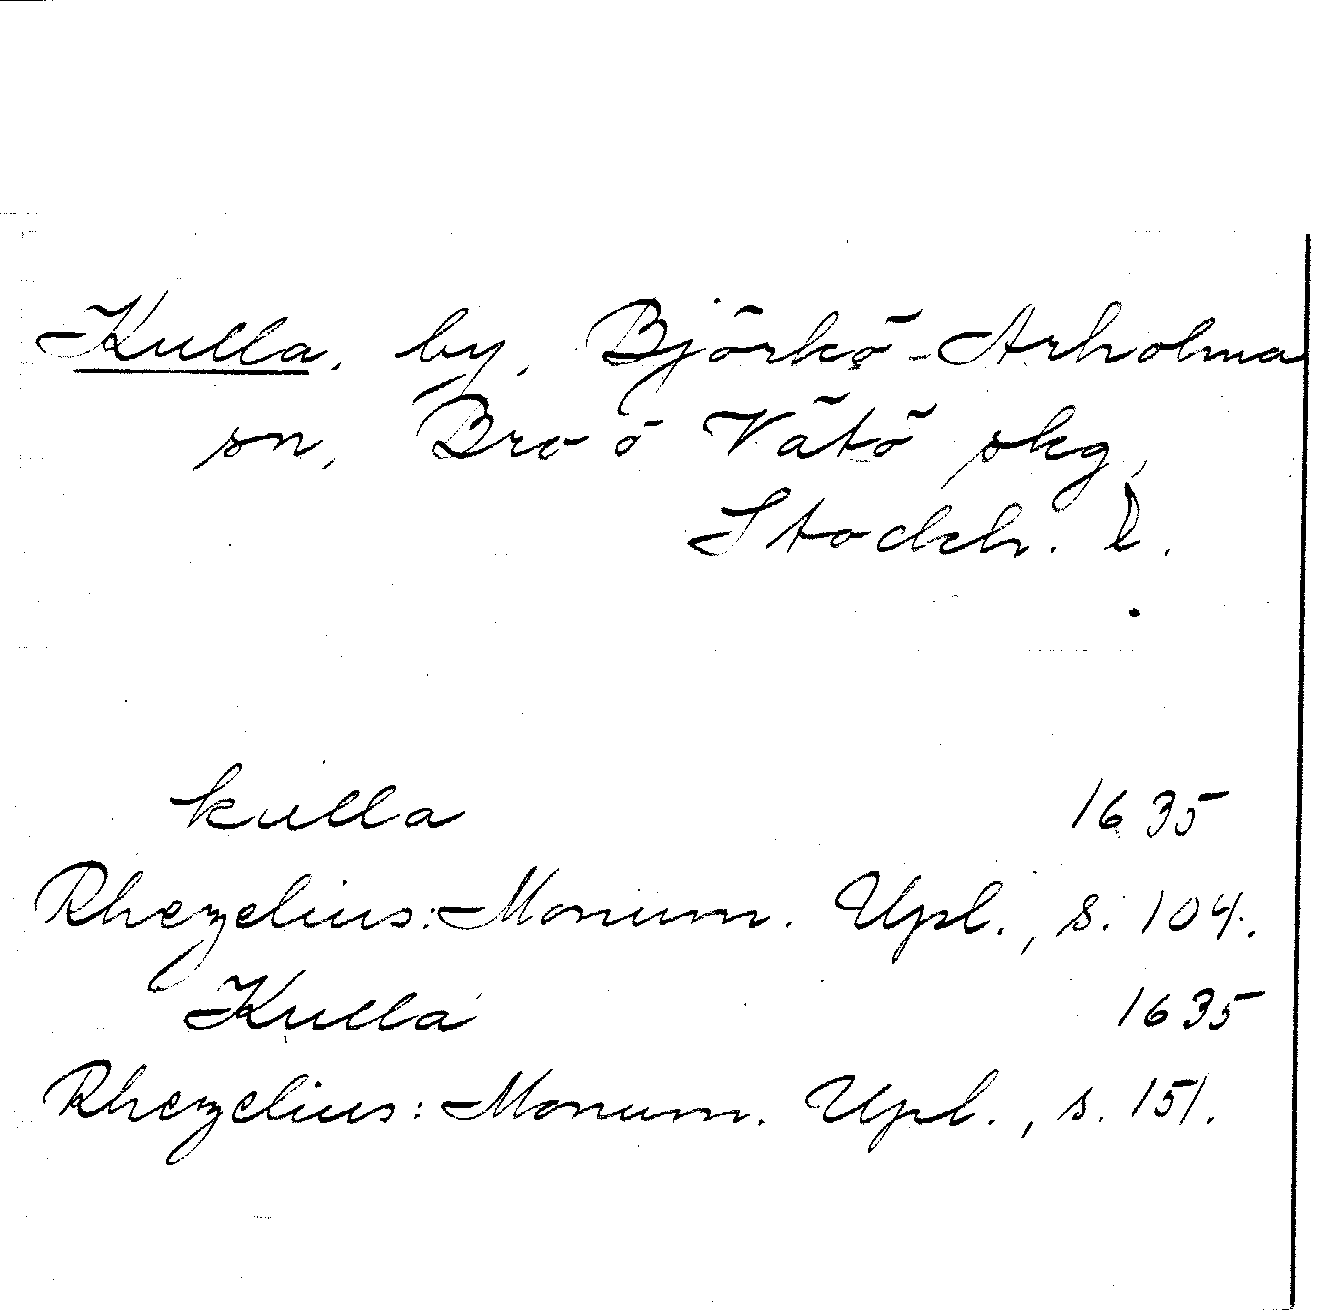 Kulla, by, Björkö-Arholma
sn, Bro o Vätö skg,
Stockh. l.
kulla 1635
Rhezelius: Monum. Upl., s. 104.
Kulla 1635
Rhezelius: Monum. Upl., s. 151.